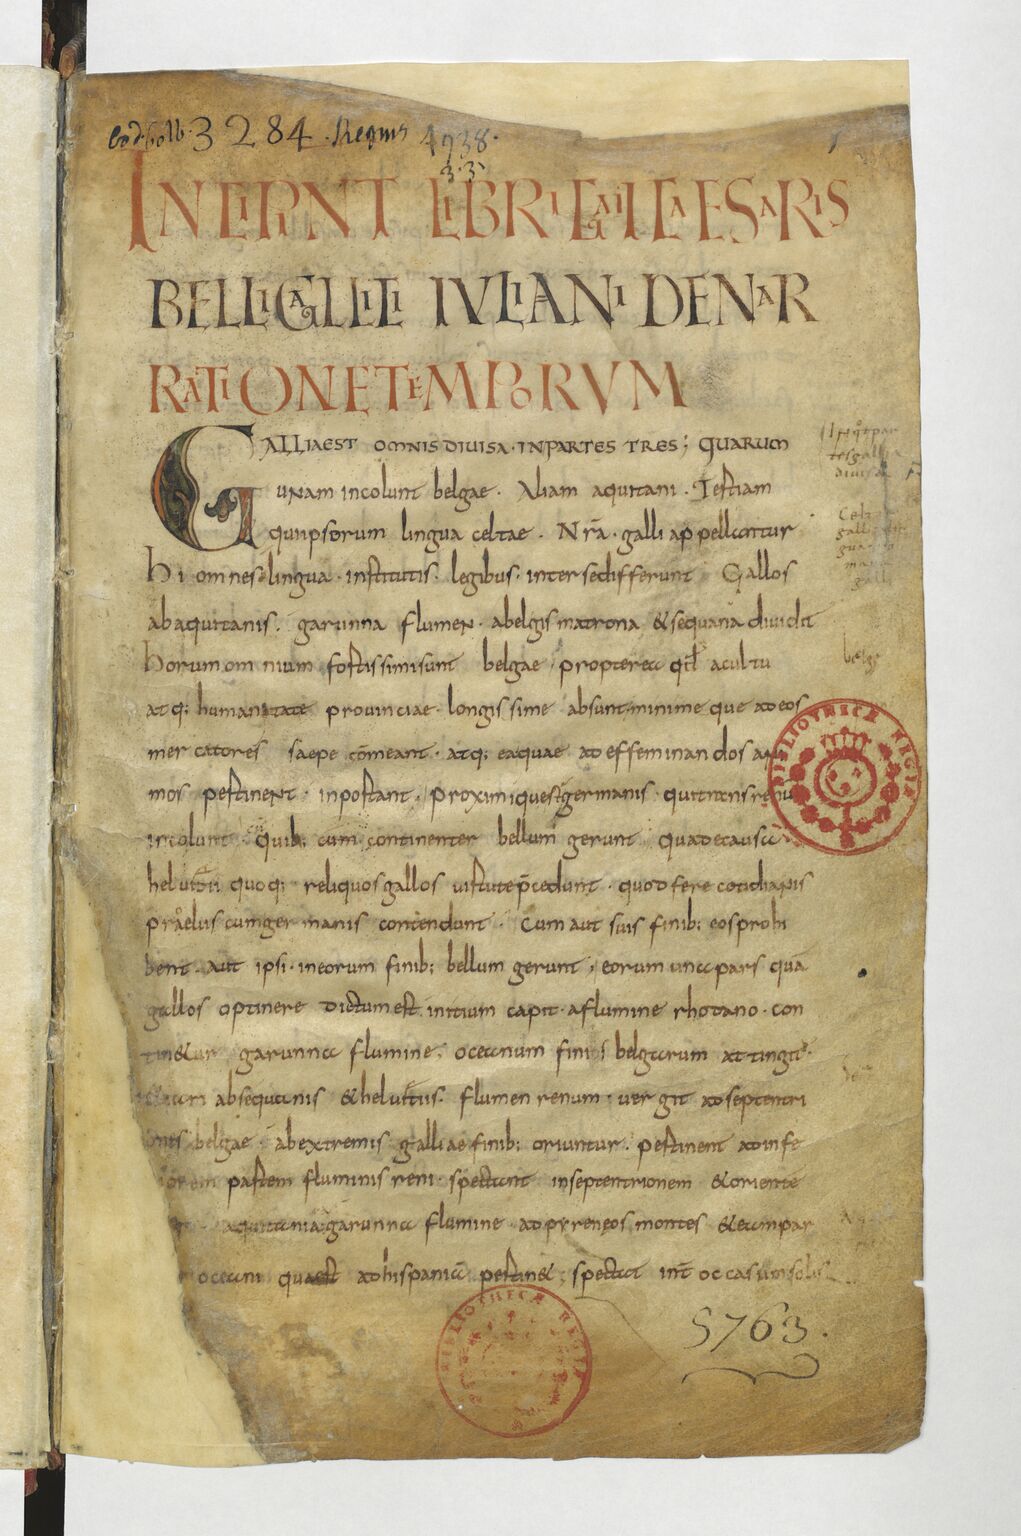 Cod. Colb. 3284. Regius 4938.
3.3.
INCIPIUNT LIBRI GAII CAESARIS
BELLI GALLICI IVLIANI DE NAR
RATIONE TEMPORVM
GALLIA EST OMNIS DIVISA · IN PARTES TRES ; QUARUM
UNAM incolunt belgae · Aliam aquitani · Tertiam
qui ipsorum lingua celtae · Nrā · galli appellantur
hi omnes lingua · institutis · legibus · inter se differunt Gallos
ab aquitanis · garunna flumen · a belgis matrona & sequana diuidit
horum omnium fortissimi sunt belgae · propterea qd a cultu
atq; humanitate prouinciae · longissime absunt minime que ad eos
mercatores saepe cōmeant · atq; ea quae ad effeminandos ani
mos pertinent · inportant · proximique st germanis · qui trans renū
incolunt quib; cum continenter bellum gerunt qua de causa
heluetii quoq; reliquos gallos uirtute p̄cedunt · quod fere cotidianis
praelus cum germanis contendunt · Cum aut suis finib; eos prohi
bent · aut ipsi · in eorum finib; bellum gerunt · eorum una pars quā
gallos optinere dictum est initium capit · a flumine rhodano · con
tin&ur garunna flumine · oceanum finis belgarum attingit ·
&iam ab sequanis & heluetiis · flumen renum · uergit ad septentri
ones belgae · ab extremis galliae finib; oriuntur · pertinent ad infe
riorem partem fluminis reni · spectant in septentrionem & orientē
aquitania garunna flumine ad pyreneos montes & eam par
oceani quae est ad hispaniā pertin& · spectat int occasum solis
belge
BIBLIOTHECAE REGIAE
BIBLIOTHECAE REGIAE
5763.